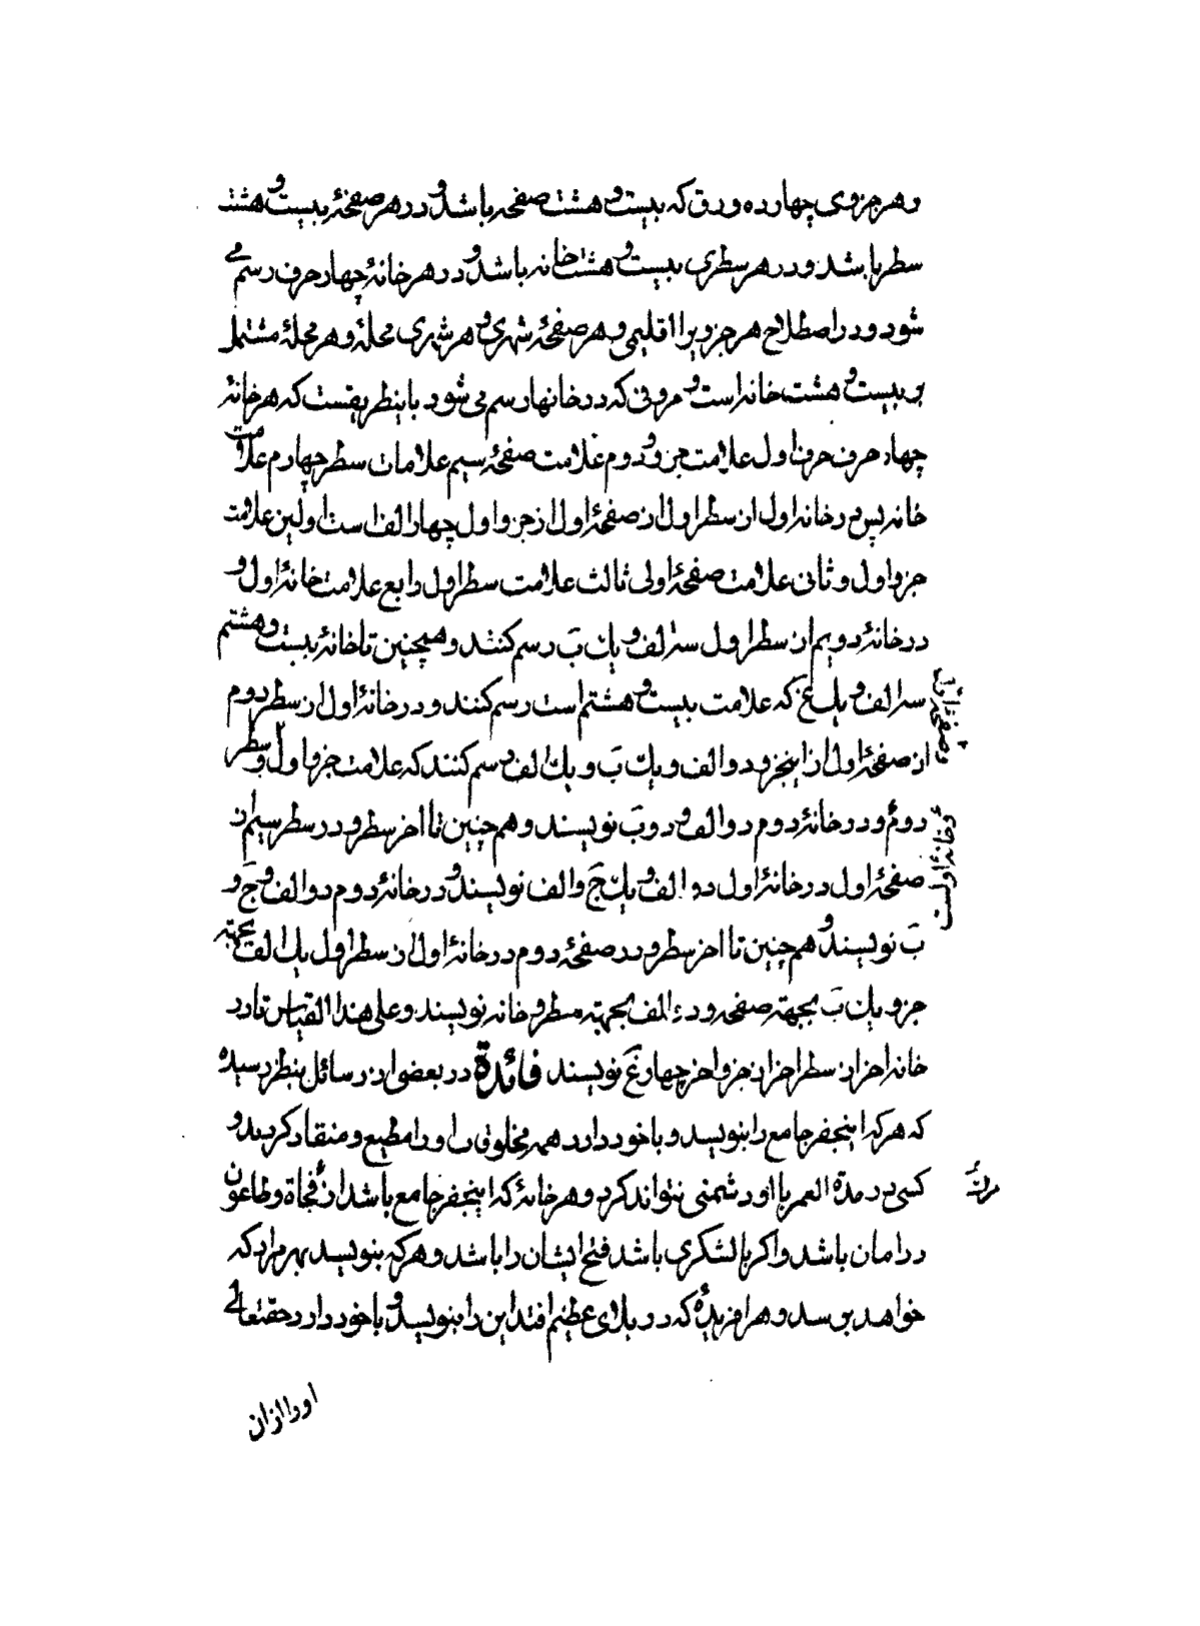 و هر جزوی چهارده ورق که بیست و هشت صفحه باشد و در هر صفحهٔ بیست و هشت
سطر باشد و در هر سطری بیست و هشت خانه باشد و در هر خانهٔ چهار حرف رسم می
شود و در اصطلاح هر جزویرا اقلیمی و هر صفحهٔ شهری و هر شهری محلهٔ و هر محلهٔ مشتمل
بر بیست و هشت خانه است و حروفی که در خانها رسم می شود باینطریقست که هر خانهٔ
چهار حرف حرف اول علامت جزو و دوم علامت صفحهٔ سیم علامات سطر چهارم علامت
خانه پس در خانه اول از سطر اول از صفحهٔ اول از جزو اول چهار الف است اولین علامت
جزو اول و ثانی علامت صفحهٔ اولی ثالث علامت سطر اول رابع علامت خانهٔ اول و
در خانهٔ دویم از سطر اول سه الف و یک ب رسم کنند و همچنین تا خانهٔ بیست و هشتم
سه الف و یک غ که علامت بیست و هشتم است رسم کنند و در خانهٔ اول از سطر دوم
از صفحهٔ اول از اینجزو دو الف و یک ب و یک الف رسم کنند که علامت جزو اول و سطر
و صفحهٔ اول
دوم و در خانهٔ دوم دو الف و دو ب نویسند و هم چنین تا اخر سطر و در سطر سیم از
و خانهٔ اولست
صفحهٔ اول در خانهٔ اول دو الف و یک ج و الف نویسند و در خانهٔ دوم دو الف و ج و
ب نویسند و هم چنین تا اخر سطر و در صفحهٔ دوم در خانهٔ اول از سطر اول یک الف بجهته
جزو و یک ب بجهته صفحه و دو الف بجهته سطر و خانه نویسند و علی هذا القیاس تا در
خانه اخر از سطر اخر از جزو اخر چهار غ نویسند فائدة در بعضی از رسائل بنظر رسیده
که هر که اینجفر جامع را بنویسد و با خود دارد همه مخلوق را او را مطیع و منقاد کردند و
کسی در مدة العمر با او دشمنی نتواند کرد و هر خانهٔ که اینجفر جامع باشد از فجاة و طاعون
در امان باشد و اکر با لشکری باشد فتح ایشان را باشد و هر که بنویسد بهر مراد که
خواهد برسد و هر افریدهٔ که در بلای عظیم افتد این را بنویسد و با خود دارد حقتعالی
او را از ان